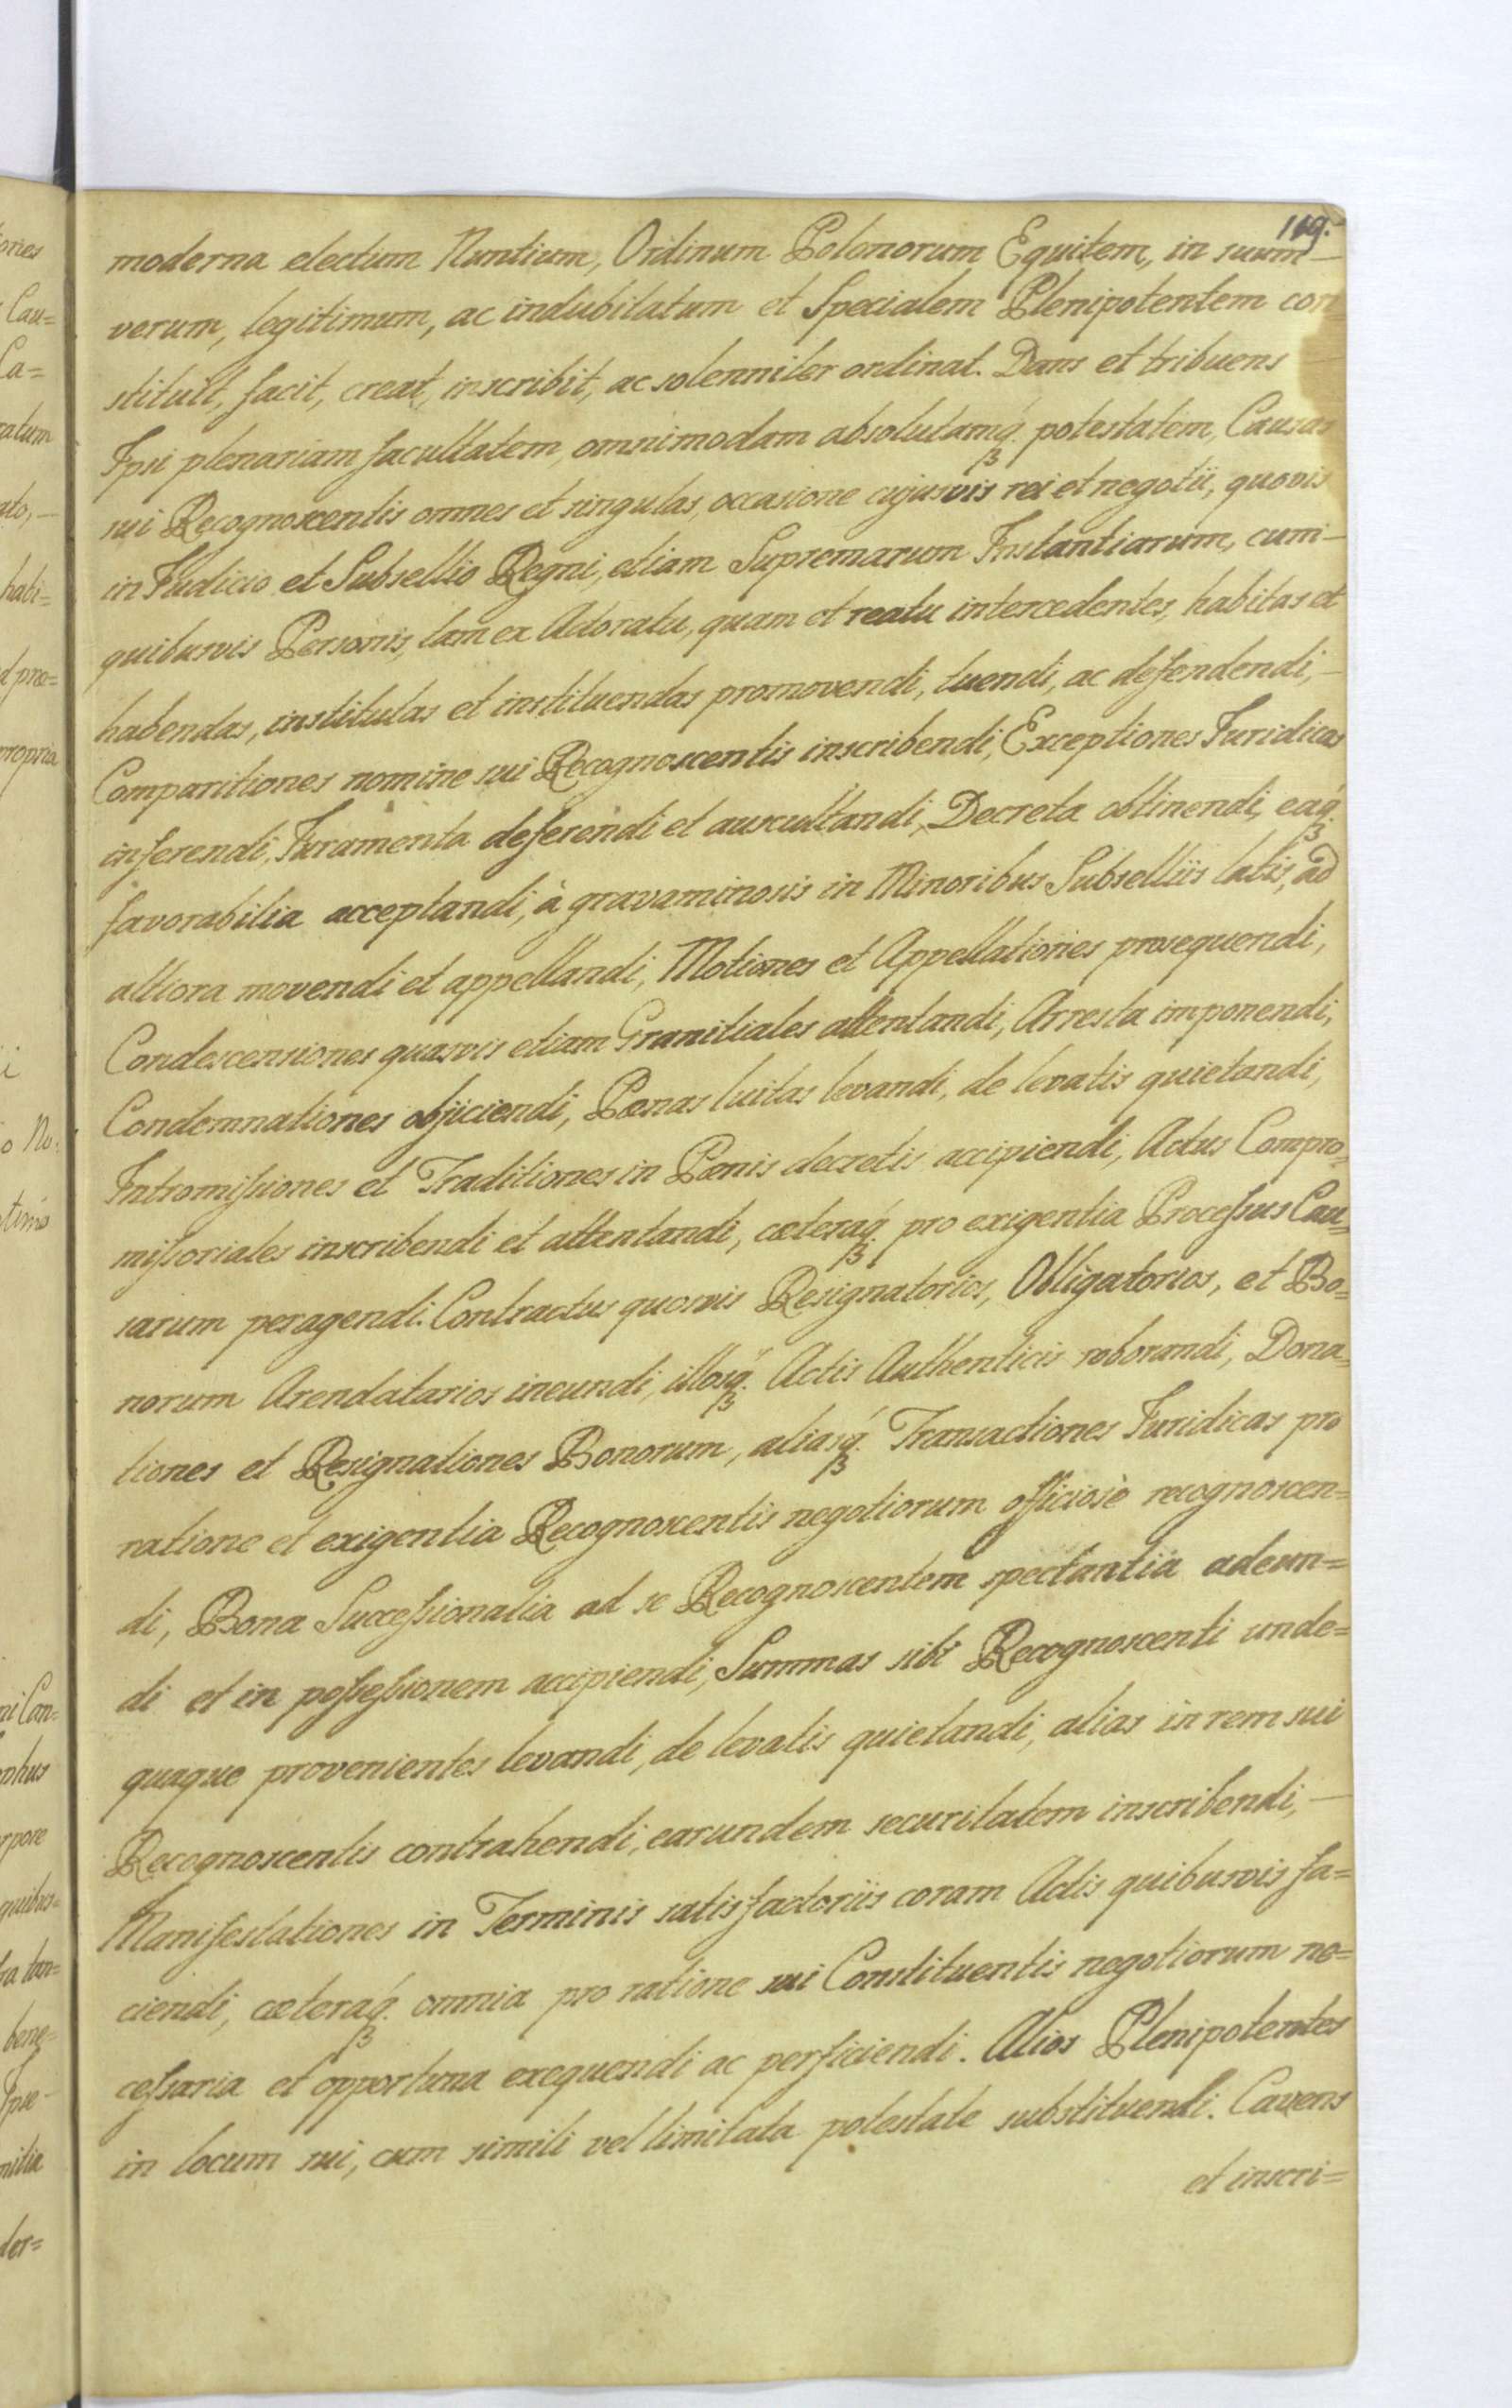 119.
moderna electum Nuntium, Ordinum Polonorum Equitem, in suum
verum, legitimum, ac indubitatum et Specialem Plenipotentem con
stituit, facit, creat, inscribit, ac solenniter ordinat. Dans et tribuens
Ipsi plenariam facultatem, omnimodam absolutamq; potestatem, Causas
sui Recognoscentis omnes et singulas, occasione cujusvis rei et negotii, quovis
in Judicio et Subsellio Regni, etiam Supremarum Instantiarum, cum
quibusvis Personis, tam ex Actoratu, quam et reatu intercedentes, habitas et
habendas, institutas et instituendas promovendi, tuendi, ac defendendi,
Comparitiones nomine sui Recognoscentis inscribendi, Exceptiones Juridicas
inferendi, Juramenta deferendi et auscultandi, Decreta obtinendi, eaq;
favorabilia acceptandi, à gravaminosis in Minoribus Subselliis latis, ad
altiora movendi et appellandi, Motiones et Appellationes prosequendi,
Condescensiones quasvis etiam Granitiales attentandi, Arresta imponendi,
Condemnationes objiciendi, Pœnas luitas levandi, de levatis quietandi,
Intromissiones et Traditiones in Pœnis decretis accipiendi, Actus Compro=
missoriales inscribendi et attentandi, cæteraq; pro exigentia Processus Cau=
sarum peragendi. Contractus quosvis Resignatorios, Obligatorios, et Bo=
norum Arendatarios ineundi, illosq; Actis Authenticis roborandi, Dona=
tiones et Resignationes Bonorum, aliasq; Transactiones Juridicas pro
ratione et exigentia Recognoscentis negotiorum officiosè recognoscen=
di, Bona Successionalia ad se Recognoscentem spectantia adeun=
di et in possessionem accipiendi, Summas sibi Recognoscenti unde=
quaque provenientes levandi, de levatis quietandi, alias in rem sui
Recognoscentis contrahendi, earundem securitatem inscribendi,
Manifestationes in Terminis satisfactoriis coram Actis quibusvis fa=
ciendi, cæteraq; omnia pro ratione sui Constituentis negotiorum ne=
cessaria et opportuna exequendi ac perficiendi. Alios Plenipotentes
in locum sui, cum simili vel limitata potestate substituendi. Cavens
et inscri=